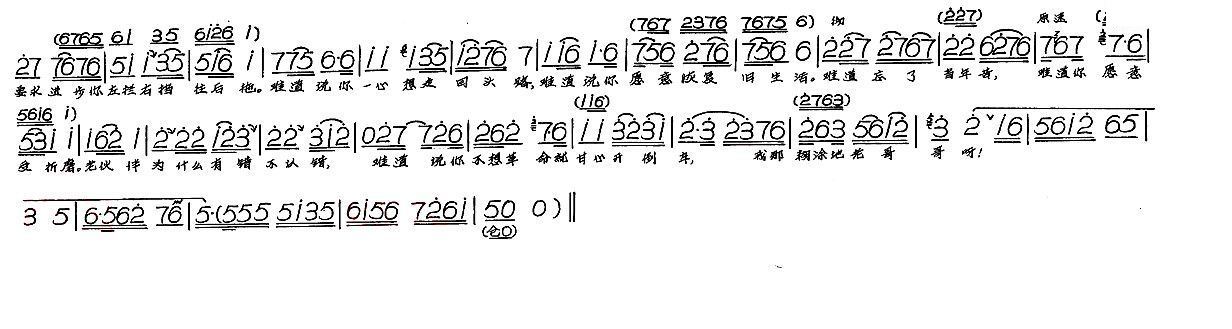 (6765 61 35 6126 1) (767 2376 7675 6) 渐 (227) 原速 (1
27 7676|51 1·35|516 1|775 6·6|11 135|1276 7|116 1·6|756 276|756 6|227 2767|22 6276|767 7·6|
要求进步你左拦右挡 往后拖。难道说你一心想走回头路,难道说你愿意恢复旧生活。难道忘了当年苦,难道你愿意
5616 1) (116) (2763)
531 1|162 1|222 123|22 312|027 726|262 76|11 3231|2·3 2376|263 5612|3 2 16|5612 65|
受折磨。老伙伴为什么有错不认错,难道说你不想革命就甘心开倒车,我那糊涂地老哥哥呀!
3 5|6·562 76|5·(555 5135|6156 7261|50 0)‖
(仓0)